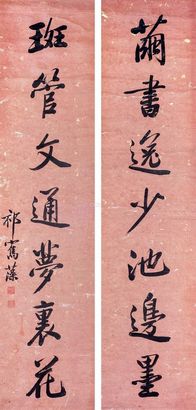 茧書逸少池邊墨
斑管文通夢裏花
祁寯藻